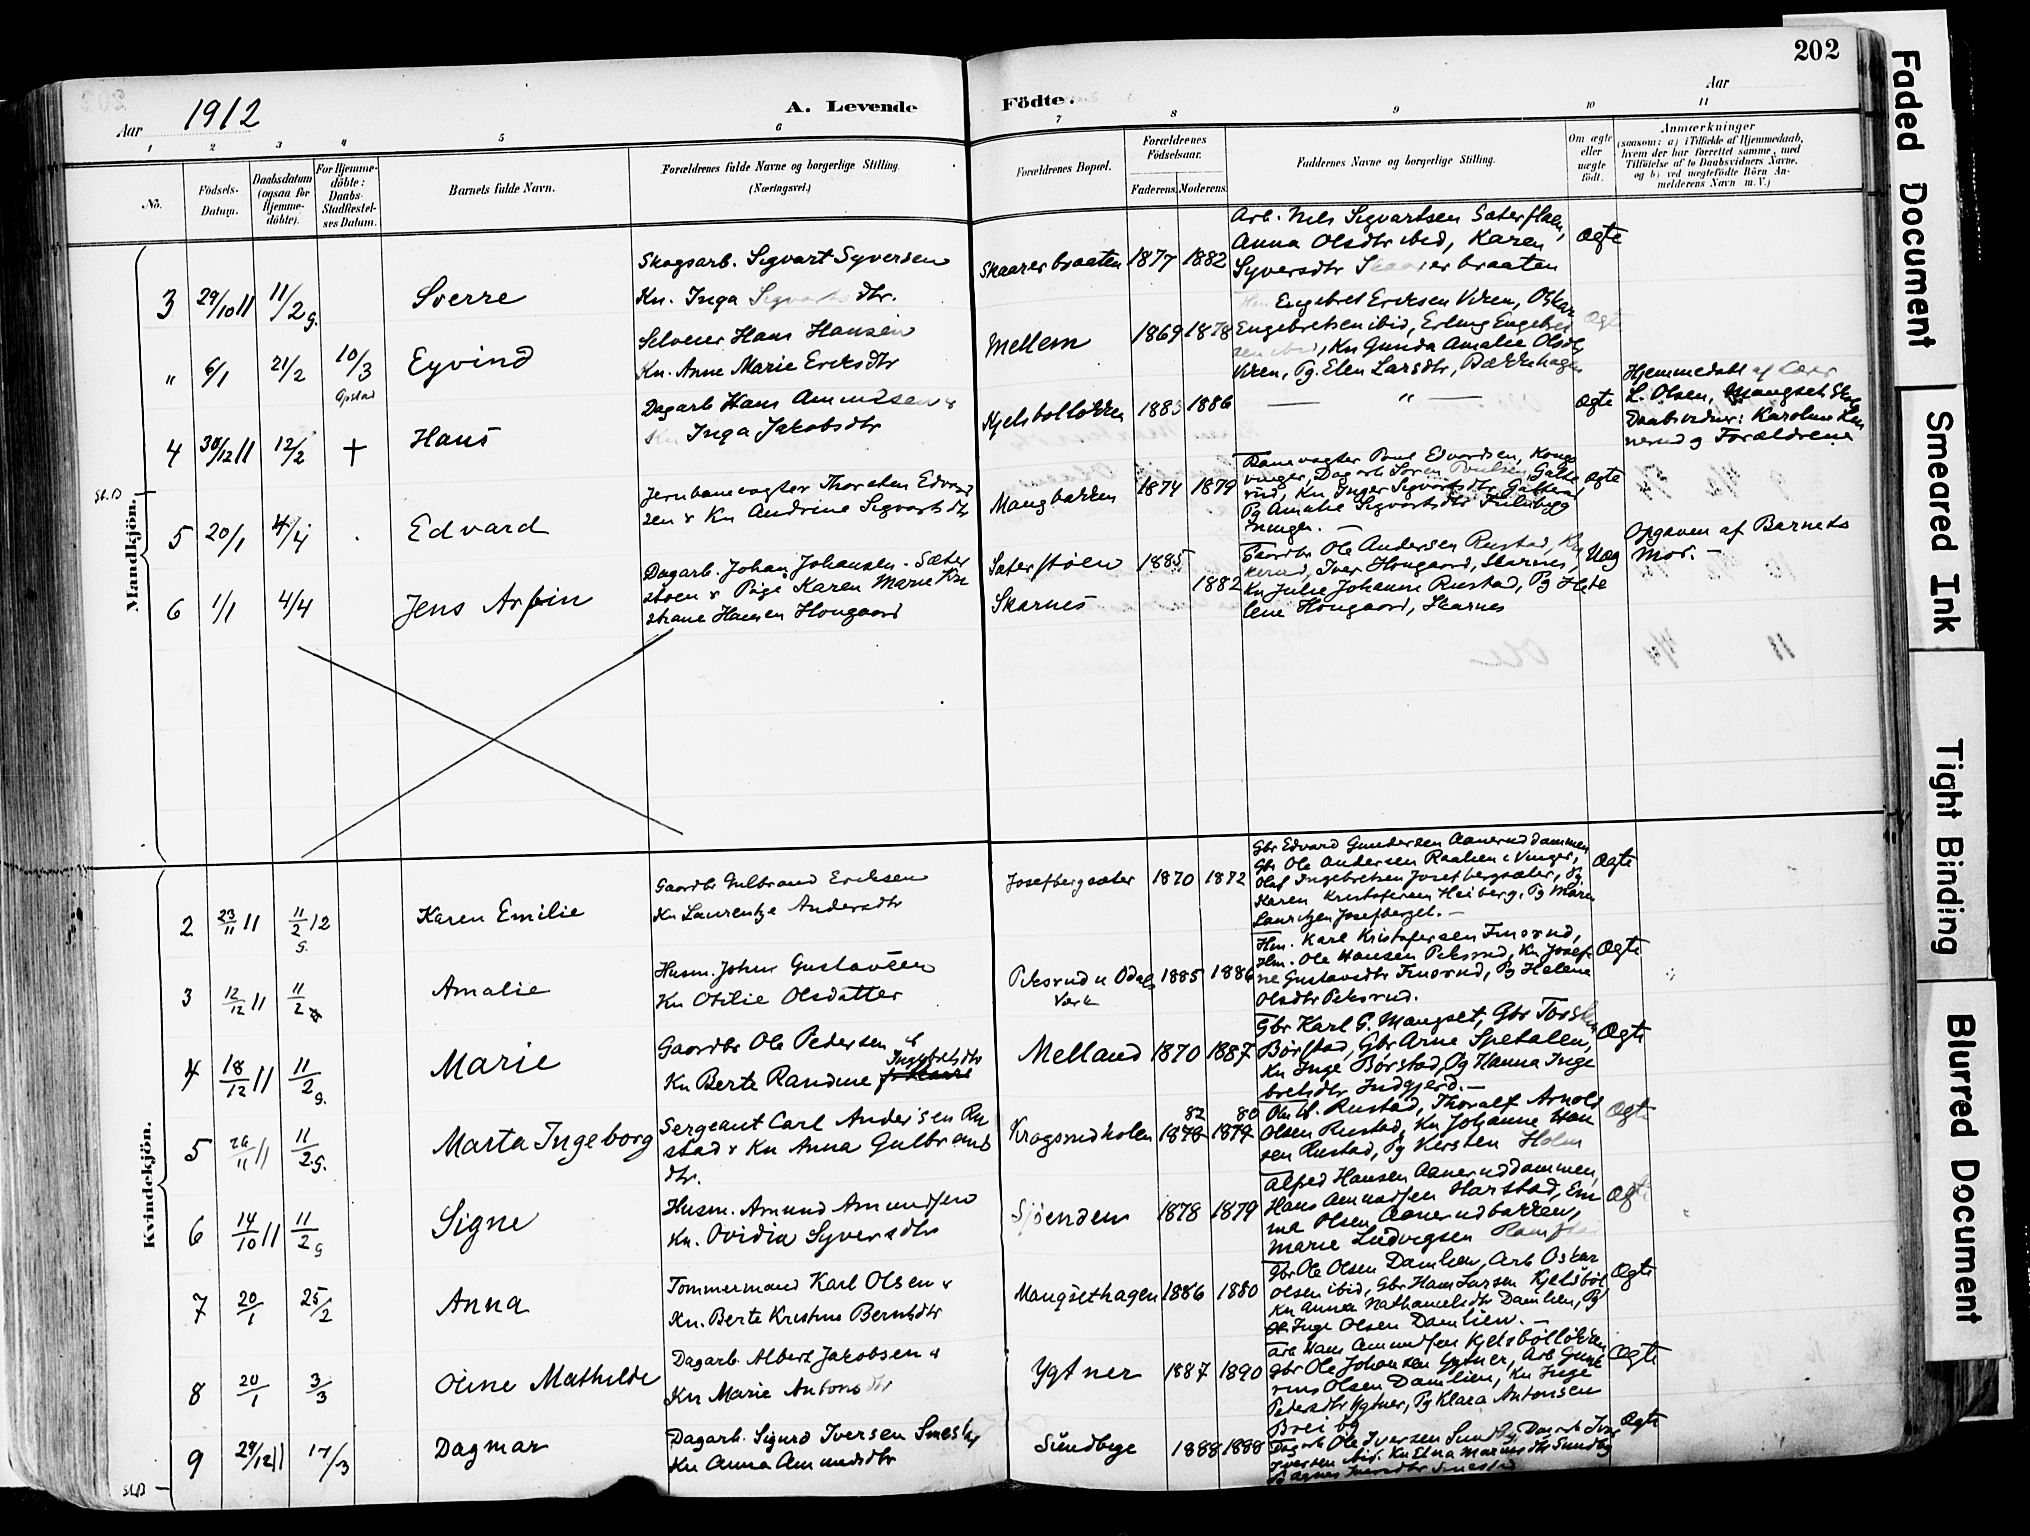 202
Aar 1912
A. Levende Födte.
Aar
1 2 3 4 5 6 7 8 9 10 11
No.
Födsels-Datum.
Daabsdatum (ogsaa for Hjemme-döbte).
For Hjemme-döbte: Daabs-Stadfæstel-ses Datum.
Barnets fulde Navn.
Forældrenes fulde Navne og borgerlige Stilling.
(Næringsvei.)
Forældrenes Bopæl.
Forældrenes Födselsaar.
Faderens. Moderens.
Faddernes Navne og borgerlige Stilling.
Om ægte eller uægte födt.
Anmærkninger
(saasom: a) i Tilfælde af Hjemmedaab, hvem der har forrettet samme, med Tilföielse af to Daabsvidners Navne, og b) ved uægtefödte Börn An-melderens Navn m. V.)
Mandkjön.
3 29/10 11 11/2 g. Sverre
Skogsarb. Sigvart Syversen
Kn. Inga dtr.
Skaarerbraaten 1877 1882
Arb. Nils Sigvartsen Sæterstøen,
Anna Olsdtr ibid, Karen
Syversdtr braaten
Ægte
" 6/1 21/2 10/3 Eyvind
Opstad
Selveier Hans Hansen
Kn. Anne Marie Eriksdtr
Mellem 1869 1878
Engebret Eriksen Viken, Oskar
Engebretsen ibid, Erling Engebret
sen ibid, Kn Gunda Amalie Olsdtr
Viken, Pg. Elen Larsdtr, Bækkehagen
Ægte
4 30/12 11 12/2 + Hans
Dagarb Hans Amundsen &
Kn Inga Jakobsdtr
Kjelsbølløkken 1883 1886
— " — Ægte
Hjemmedøbt af Lærer
L. Olsen, Mangset Skole
Daabsvidner:
og Forældrene
St. B
5 20/1 4/4 Edvard
Jernbanevogter Thorsten Edvard
sen & Kn Andrine Sigvartsdtr
Mangbakken 1874 1879
Banevogter Paul Edvardsen, Kongs
vinger, Dagarb Søren Poulsen
Kn Inger Sigvartsdtr
Pg Amalie Sigvartsdtr
Ægte
6 1/1 4/4 Jens Arfin
Dagarb. Johan Johansen Sæter
støen & Pige Karen Marie Kri
stiane Hansen Hougaard
Sæterstøen 1885
Skarnes 1882
Gaardbr Ole Andersen Rustad,
Iver Hougaard, Skarnes,
Kn Julie Johanne Rustad, Pg He
lene Hougaard, Skarnes
Uæg
te
Opgaven af Barnets
Mor. —
Kvindekjön.
2 23/11 11 11/2 12 g. Karen Emilie
Gaardbr Gulbrand Eriksen
Kn Laurentze Andersdtr
Josefbergsæter 1870 1872
Gbr Edvard Gundersen Aaneruddammen
Gbr Ole Andersen Raaken i Vinger,
Olaf Ingebretsen Josefbergsæter, Pg
Karen Kristofersen Heiberg, Pg Maren
Lauritzen Josefberget. —
Ægte
3 12/12 11 11/2 Amalie
Husm. Johan Gustavsen
Kn Otilie Olsdatter
Peksrud u Odals
Verk
1885 1886
Hm. Karl Kristofersen Finsrud,
Hm. Ole Hansen Peksrud, Kn Josefi
ne Gustavsdtr Finsrud, Pg Helene
Olsdtr Peksrud.
Ægte
4 18/12 11 11/2 g. Marie
Gaardbr Ole Pedersen &
Kn Berte Randine Ingebretsdtr
Melland 1870 1887
Gbr Karl G. Mangset, Gbr Torsten
Børstad, Gbr Arne Spetalen,
Kn Inge Børstad, Pg Hanna Inge
bretsdtr Indgjerd. —
Ægte
5 11 11 11/2 g. Marta Ingeborg
Sergeant Carl Andersen Ru
stad & Kn Anna Gulbrands
dtr.
Krogsrudkolen 82 80
1878 1879
Rustad, Thoralf Arnold
Olsen Rustad, Kn Johanne Han
sen Rustad, Pg Kersten Holm
Ægte
6 14/10 11 11/2 g Signe
Husm. Amund Amundsen
Kn. Ovidia Syversdtr
Sjøenden 1878 1879
Alfred Hansen Aaneruddammen,
Hans Amundsen Harstad, Em
ma Olsen, Aanerudbakken,
Marie Ludvigsen
Ægte
7 20/1 25/2 Anna
Tømmermand Karl Olsen &
Kn. Berte Kristine Berntsdtr
Mangsethagen 1886 1880
Gbr Ole Olsen Damlien, Arb Oskar
Olsen ibid, Gbr Hans Larsen Kjelsbøl
Kn Anna Nathanielsdtr Damlien, Pg
Inge Olsen Damlien. —
Ægte
8 20/1 3/3 Oline Mathilde
Dagarb. Albert Jakobsen &
Kn Marie Antonsdtr
Ygtner 1887 1890
Arb Hans Amundsen Kjelsbølløkken
Gbr Ole Johansen Ygtner, Arb Gune
rius Olsen Damlien, Kn Inge
Pedersdtr Ygtner, Pg Klara Antonsen
Breiby
Ægte
9 29/12 11 17/3 Dagmar
Dagarb. Sigurd Iversen
Kn Anna Amundsdtr
Sundbye 1888 1888
Dagarb Ole Iversen Sundby, Dagarb Iver
Iversen ibid. Kn Elna Sundby
Pg Agnes Iversdtr
Ægte
St.B
Faded Document
Smeared Ink
Tight Binding
Blurred Document